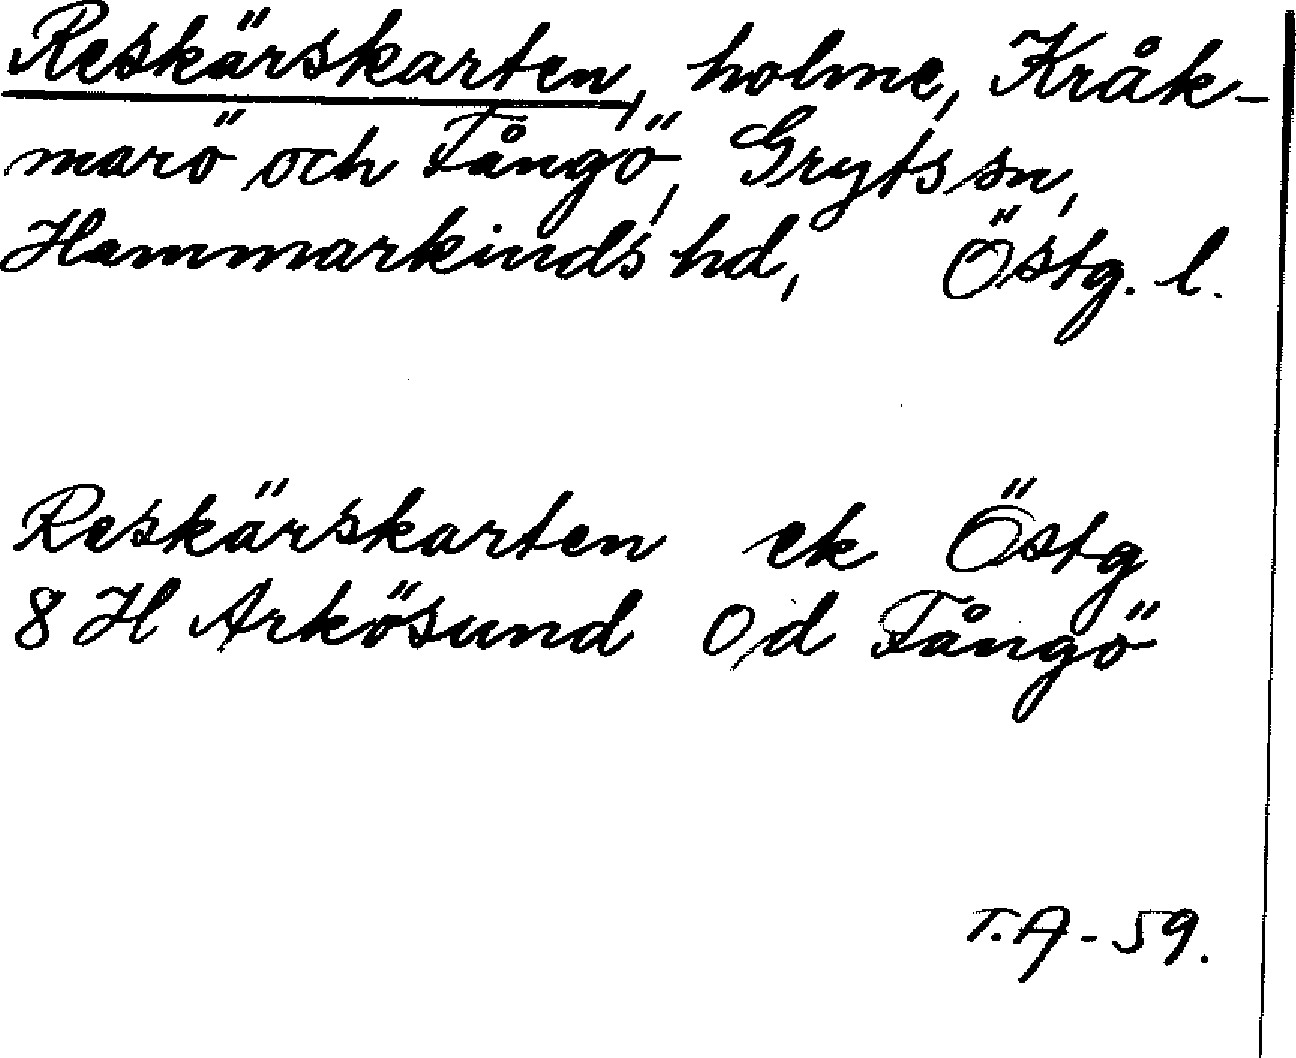 Reskärskarten, holme, Kråk-
marö och Fångö, Gryts sn,
Hammarkinds hd, Östg. l.
Reskärskarten ek Östg
8 H Arkösund Od Fångö
T.A-59.